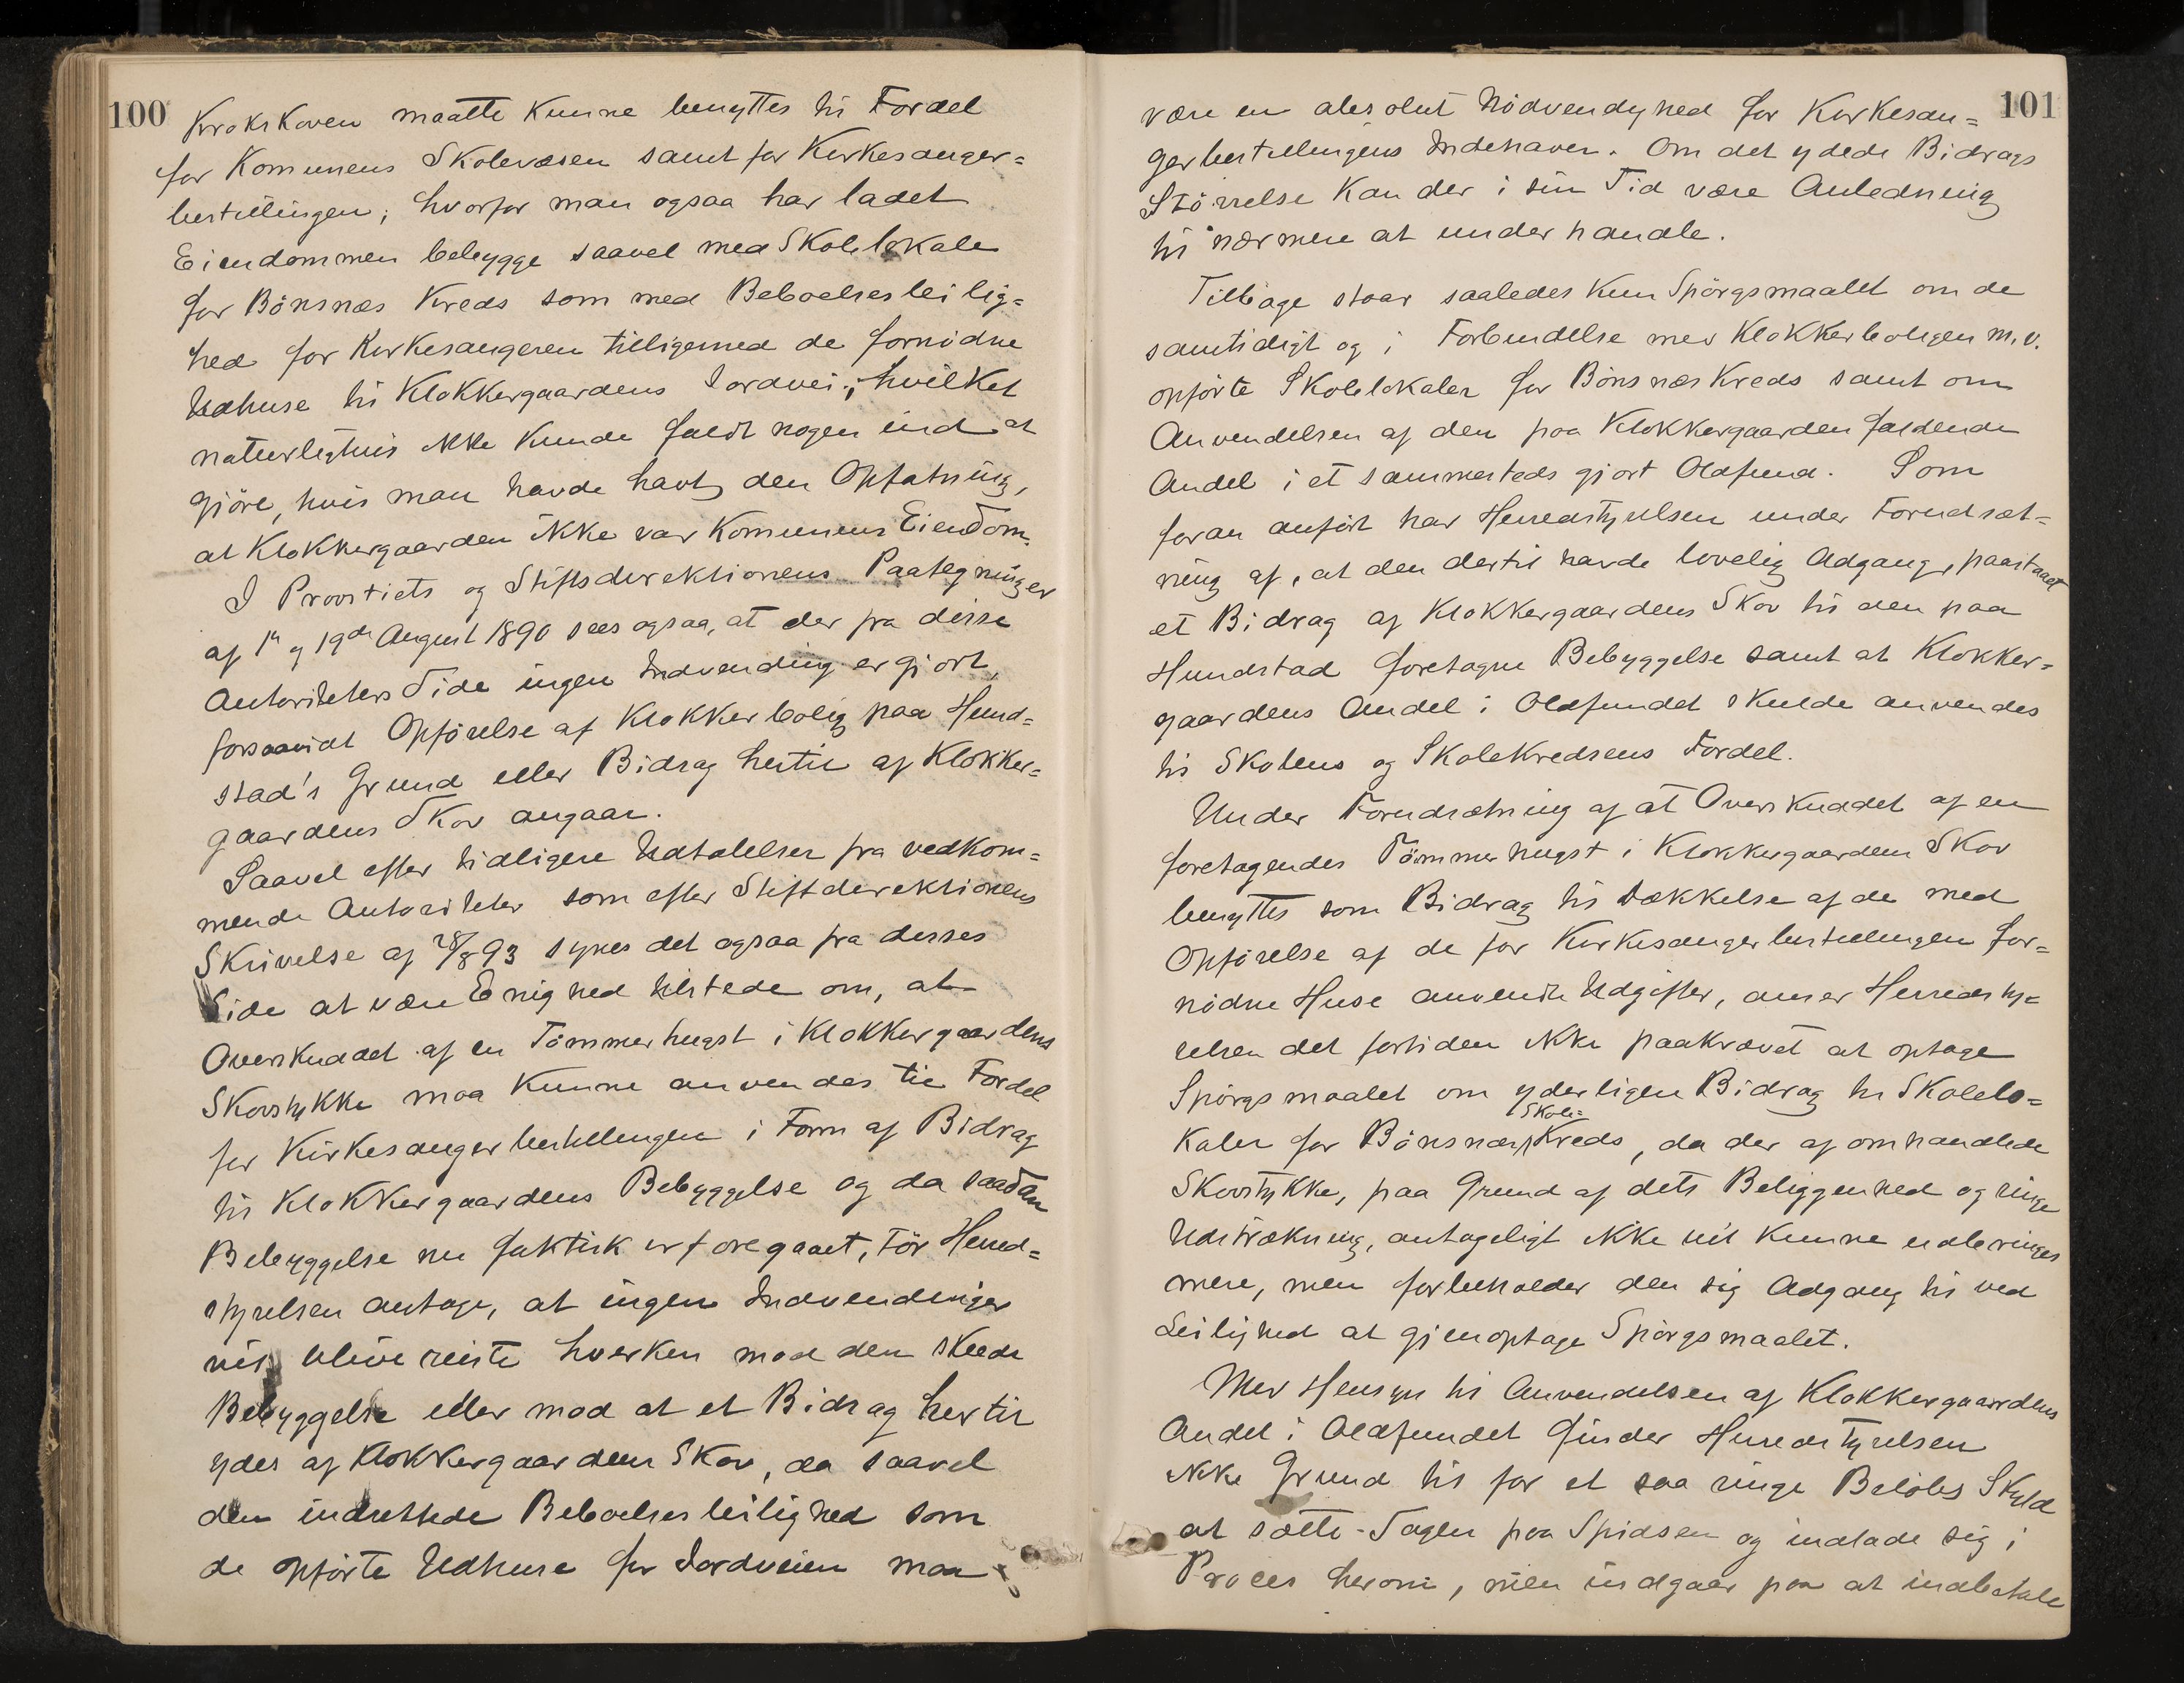 100
Krokskoven maatte kunne benyttes til Fordel
for Komunens Skolevæsen samt for Kirkesanger=
bestillingen; hvorfor man ogsaa har ladet
Eiendommen bebygge saavel med Skolelokale
for Bönsnæs Kreds som med Beboelsesleilig=
hed for Kirkesangeren tilligemed de fornödne
Udhuse til Klokkergaardens Jordvei; hvilket
naturligtvis ikke kunde faldt nogen ind at
gjöre, hvis man havde havt den Opfatning,
at Klokkergaarden ikke var Komunens Eiendom.
I Provstiets og Stiftsdirektionens Paategninger
af 1ste og 19de August 1890 sees ogsaa, at der fra disse
Autoriteters Side ingen Indvending er gjort,
forsaavidt Opförelse af Klokkerbolig paa Hund=
stad's Grund eller Bidrag hertil af Klokker=
gaardens Skov angaar.
Saavel efter tidligere Udtalelser fra vedkom=
mende Autoriteter som efter Stiftdirektionens
Skrivelse af 28/8 93 synes det ogsaa fra desses
Side at være Enighed tilstede om, at
Overskuddet af en Tömmerhugst i Klokkergaardens
Skovstykke maa kunne anvendes til Fordel
for Kirkesangerbestillingen i Form af Bidrag
til Klokkergaardens Bebyggelse og da saadan
Bebyggelse nu faktisk er foregaaet, tör Herred=
styrelsen antage, at ingen Indvendinger
vil blive reiste hverken mod den skeede
Bebyggelse eller mod at et Bidrag hertil
ydes af Klokkergaardens Skov, da saavel
den indrettede Beboelsesleilighed som
de opförte Udhuse for Jordveien maa
101
være en absolut Nödvendighed for Kirkesan=
gerbestillingens Indehaver. Om det ydede Bidrags
Störrelse kan der i sin Tid være Anledning
til nærmere at underhandle.
Tilbage staar saaledes kun Spörgsmaalet om de
samtidigt og i Forbindelse med Klokkerboligen m.v.
opförte Skolelokaler for Bönsnæs Kreds samt om
Anvendelsen af den paa Klokkergaarden faldende
Andel i et sammesteds gjort Oldfund. Som
foran anfört har Herredstyrelsen under Forudsæt=
ning af, at den dertil havde lovelig Adgang, paastaaet
et Bidrag af Klokkergaardens Skov til den paa
Hundstad foretagne Bebyggelse samt at Klokker=
gaardens Andel i Oldfundet skulde anvendes
til Skolens og Skolekredsens Fordel.
Under Forudsætning af at Overskuddet af en
foretagendes Tömmerhugst i Klokkergaardens Skov
benyttes som Bidrag til Dækkelse af de med
Opförelse af de for Kirkesangerbestillingen for=
nödne Huse anvendte Udgifter, anser Herredsty=
relsen det fortiden ikke paakrævet at optage
Spörgsmaalet om yderligere Bidrag til Skolelo=
kaler for Bönsnæs Skole= Kreds, da der af omhandlede
Skovstykke, paa Grund af dets Beliggenhed og ringe
Udstrækning, antageligt ikke vil kunne udbringes
mere, men forbeholder den sig Adgang til ved
Leilighed at gjenoptage Spörgsmaalet.
Med Hensyn til Anvendelsen af Klokkergaardens
Andel i Oldfundet finder Herredstyrelsen
ikke Grund til for et saa ringe Belöbs Skyld
at sætte Sagen paa Spidsen og indlade sig i
Proces herom, men indgaar paa at indbetale